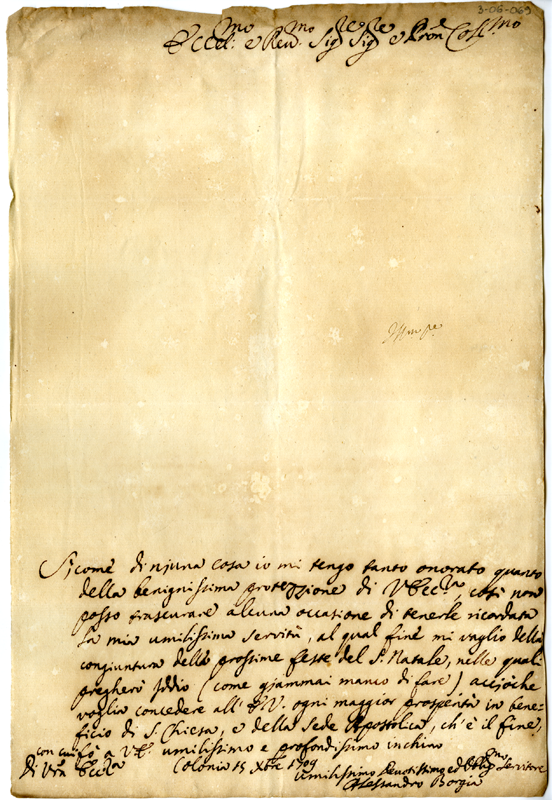 3-06-069
Eccel.mo e Rev.mo Sig.re Sig.re e Pron Col.mo
Sicome di njuna cosa io mi tengo tanto onorato quanto
della benignissima protezzione di V Ecc.za, così non
posso trascurare alcuna occasione di tenerle ricordata
la mia umilissima servitù, al qual fine mi vaglio della
conjuntura delle prossime feste del S. Natale, nelle quali
pregherò Iddio (come gjammai manco di fare) accjoche
voglia concedere all' E.V. ogni maggior prosperità in bene-
ficio di S. Chiesa, e della Sede Apostolica, ch'è il fine,
con cui fò a V.E. umilissimo e profondissimo inchino
Di Vra Ecc.za Colonia 15 Xbre 1709
Umilissimo Devotissimo ed Oblig.mo Servitore
Alessandro Borgia